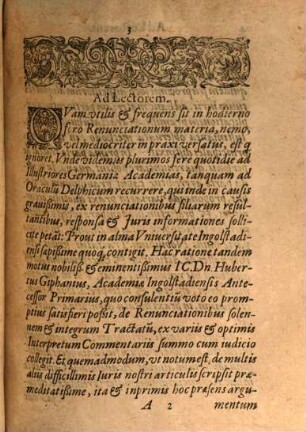 3
Ad Lectorem.
QVam vtilis & frequens sit in hodierno
foro Renunciationum materia, nemo,
vel mediocriter in praxi versatus, est qui
ignoret. Vnde videmus plurimos fere quotidie ad
Illustriores Germaniæ Academias, tanquam ad
Oraculū Delphicum recurrere, qui inde in causis
grauissimis, ex renunciationibus filiarum resul-
tantibus, responsa & Iuris informationes solli-
cite petāt: Prout in alma Vniuersitate Ingolstadi-
ensi sæpissime quoq; contigit. Hac ratione tandem
motus nobiliss. & eminentissimus IC. Dn. Huber-
tus Giphanius, Academiæ Ingolstadiensis Ante-
cessor Primarius, quo consulentiū voto eo prom-
ptius satisfieri possit, de Renunciationibus solen-
nem & integrum Tractatū, ex variis & optimis
Interpretum Commentariis summo cum iudicio
collegit. Et quemadmodum, vt notum est, de multis
aliis difficillimis Iuris nostri articulis scripsit præ-
meditatissime, ita & inprimis hoc præsens argu-
A 2 mentum